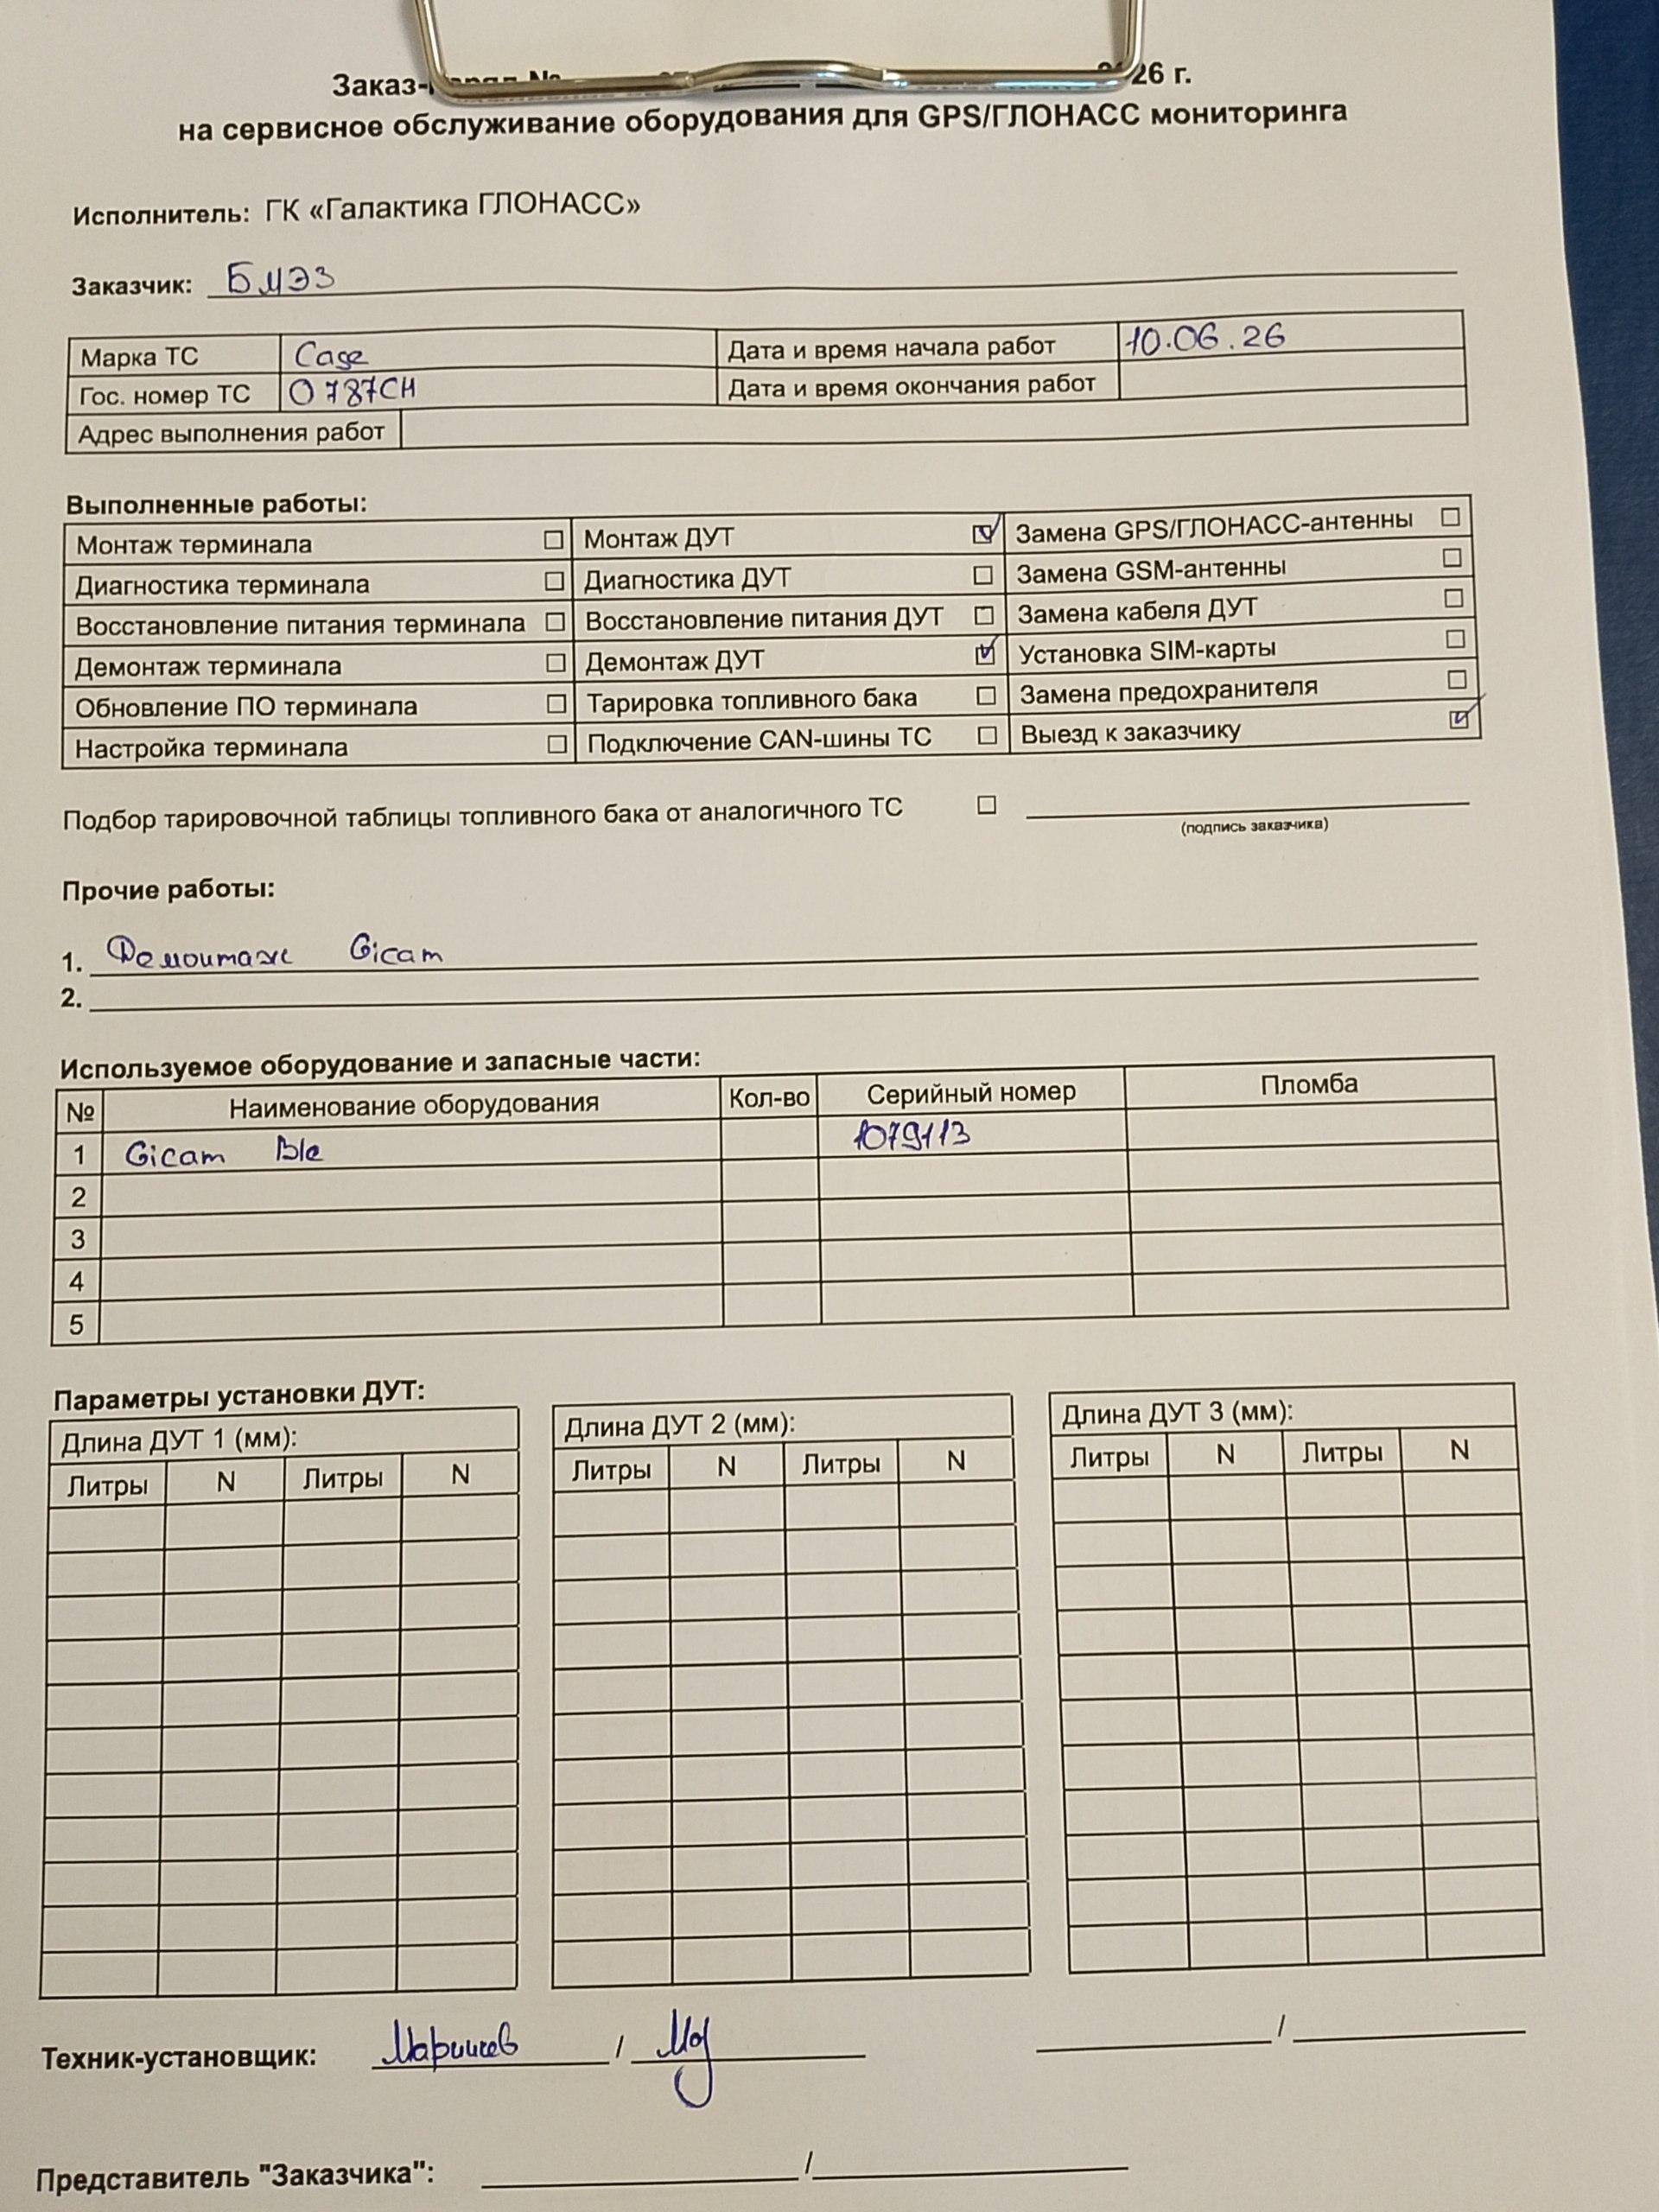 Заказ- № 26 г.
на сервисное обслуживание оборудования для GPS/ГЛОНАСС мониторинга
Исполнитель: ГК «Галактика ГЛОНАСС»
Заказчик: БМЭЗ
Марка ТС Case Дата и время начала работ 10.06.26
Гос. номер ТС О 787СН Дата и время окончания работ
Адрес выполнения работ
Выполненные работы:
Монтаж терминала ☐ Монтаж ДУТ ☑ Замена GPS/ГЛОНАСС-антенны ☐
Диагностика терминала ☐ Диагностика ДУТ ☐ Замена GSM-антенны ☐
Восстановление питания терминала ☐ Восстановление питания ДУТ ☐ Замена кабеля ДУТ ☐
Демонтаж терминала ☐ Демонтаж ДУТ ☑ Установка SIM-карты ☐
Обновление ПО терминала ☐ Тарировка топливного бака ☐ Замена предохранителя ☐
Настройка терминала ☐ Подключение CAN-шины ТС ☐ Выезд к заказчику ☑
Подбор тарировочной таблицы топливного бака от аналогичного ТС ☐
(подпись заказчика)
Прочие работы:
1. Демонтаж Gicam
2.
Используемое оборудование и запасные части:
№ Наименование оборудования Кол-во Серийный номер Пломба
1 Gicam Ble 1079113
2
3
4
5
Параметры установки ДУТ:
Длина ДУТ 1 (мм): Длина ДУТ 2 (мм): Длина ДУТ 3 (мм):
Литры N Литры N Литры N Литры N Литры N Литры N
Техник-установщик: / /
Представитель "Заказчика": /